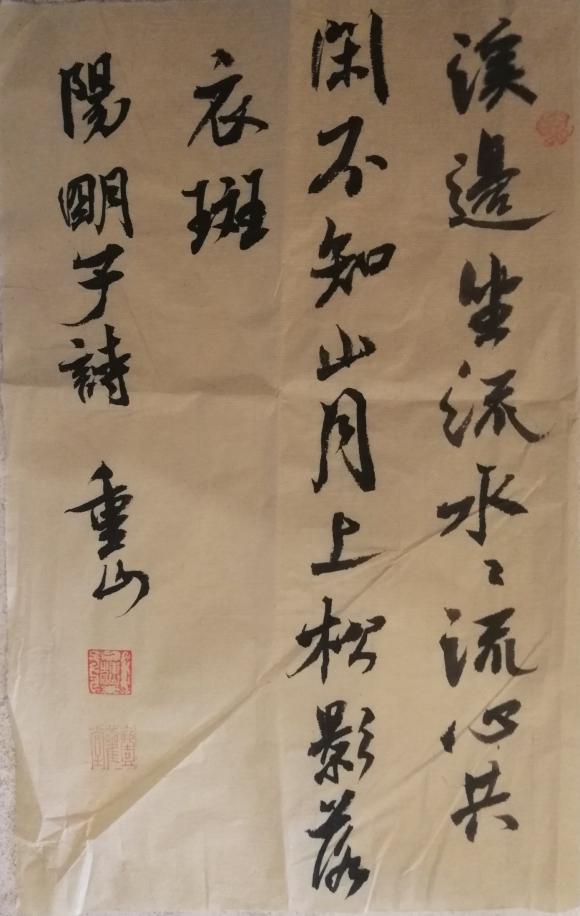 溪邊坐流水〻流心共
閑不知山月上松影落
衣斑
陽明子詩 重山